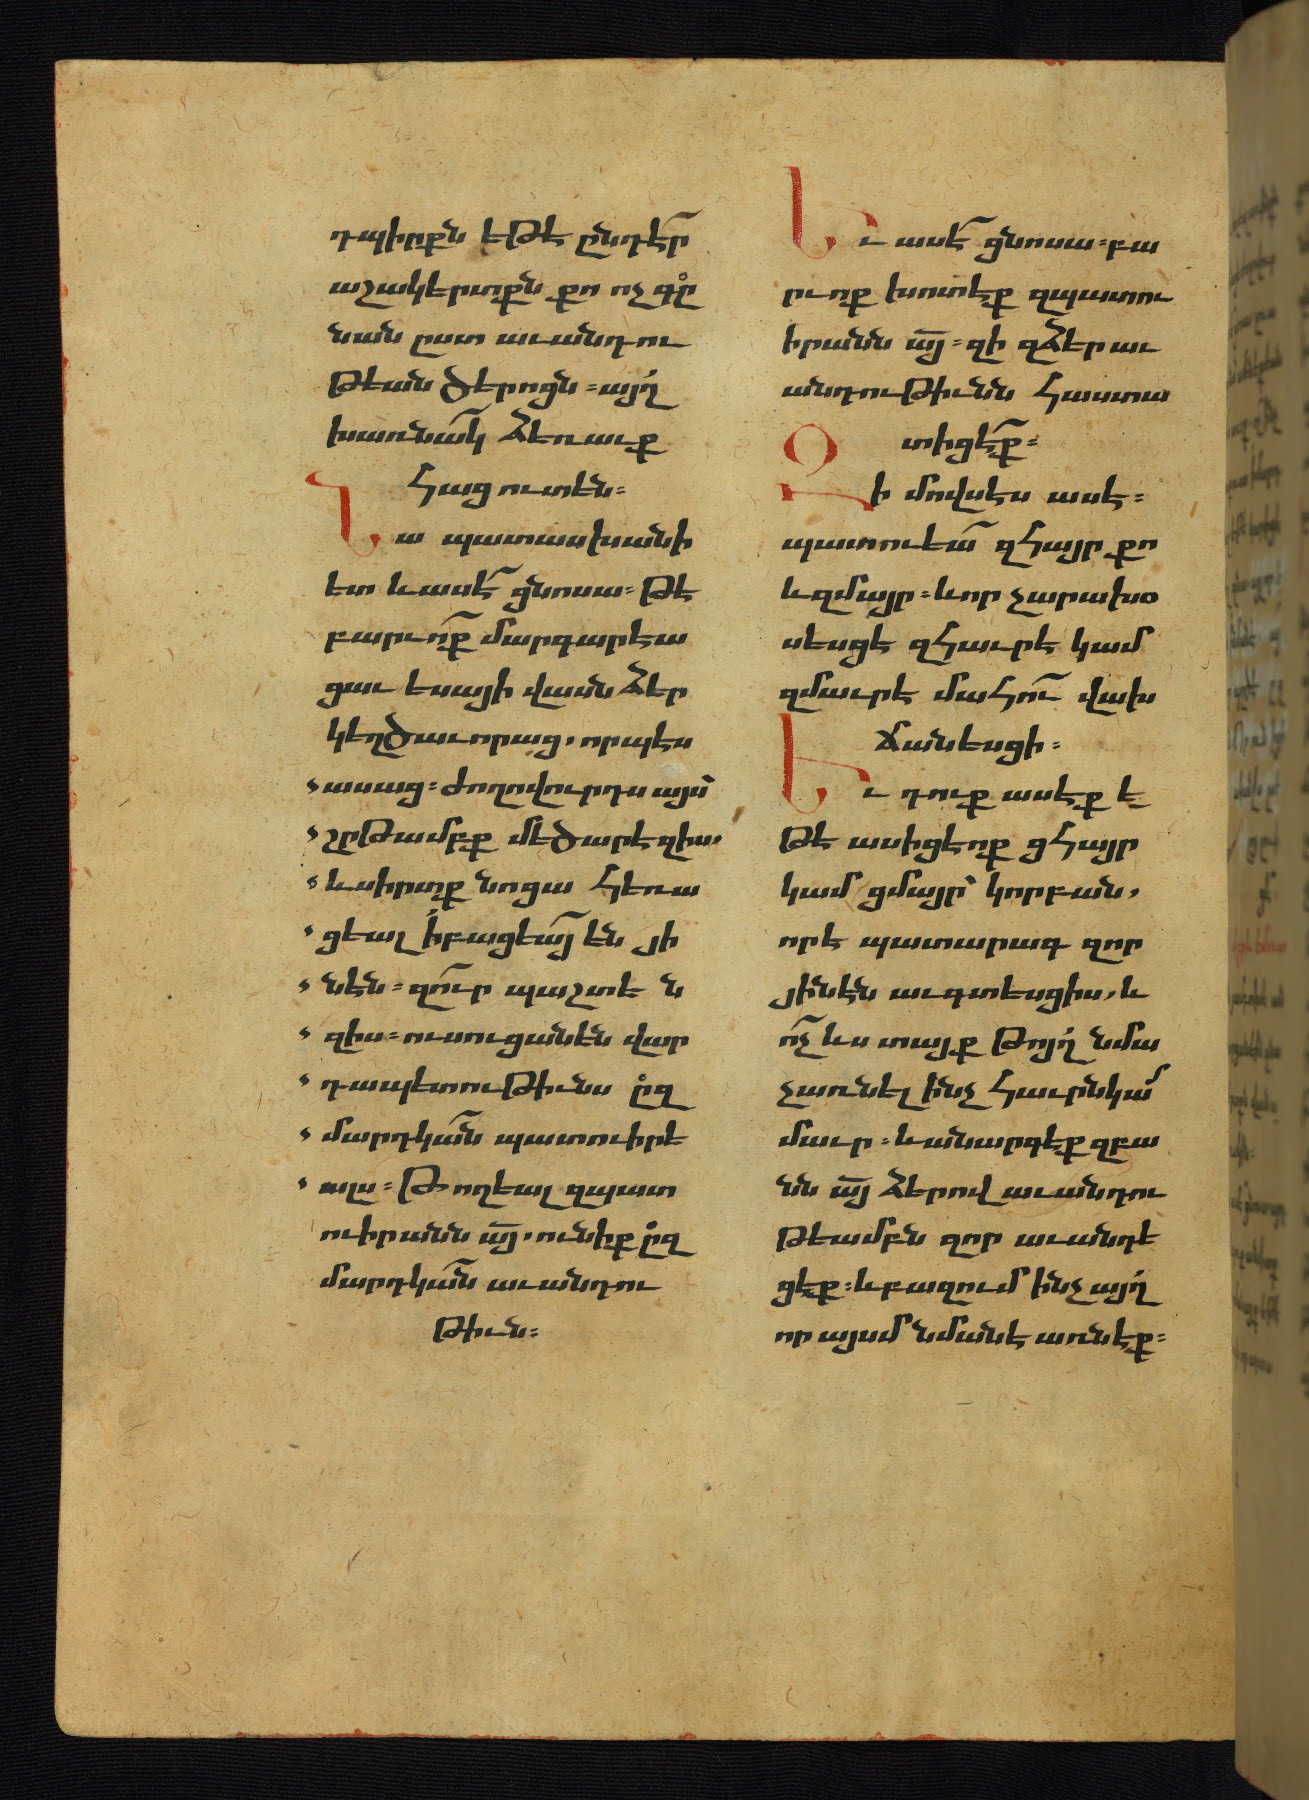 դպիրքն եթէ ընդէ՞ր
աշակերտքն քո ոչ գը֊
նան ըստ աւանդու
թեան ծերոցն։ այղ
խառնակ ձեռաւք
հաց ուտեն։
Նա պատասխանի
ետ և ասէ ցնոսա։ թէ
բարւոք մարգարէա
ցաւ եսայի վասն ձեր
կեղծաւորաց, որպէս
ասաց։ ժողովուրդս այս՝
շըթամբք մեծարէ զիս,
և սիրտք նոցա հեռա
ցեալ ի բացեայ են յի
նէն։ զուր պաշտեն
զիս։ ուսուցանեն վար
դապետութիւնս ըզ
մարդկան պատուիրե
ալս։ Թողեալ զպատ
ուիրանն այ, ունիք ըզ
մարդկան աւանդու
թիւն։
Եւ ասէ ցնոսա։ բա
րւոք խոտէք զպատու
իրանն այ։ զի զձեր աւ
անդութիւնն հաստա
տիցէք։
Զի մովսէս ասէ։
պատուեա զհայր քո
և զմայր։ և որ չարախօ
սեսցէ զհաւրէ կամ
զմաւրէ մահու վախ
ճանեսցի։
Եւ դուք ասէք ե
թէ ասիցէ ոք ցհայր
կամ ցմայր՝ կորբան,
որ է պատարագ զոր
յինէն աւգտեսցիս, և
ոչ ևս տայք թոյղ նմա
չառնել ինչ հաւրն կամ
մաւր։ և անարգէք զբա
նն այ ձերով աւանդու
թեամբն զոր աւանդե
ցէք։ և բազում ինչ այղ
որ այսմ նման է առնէք։